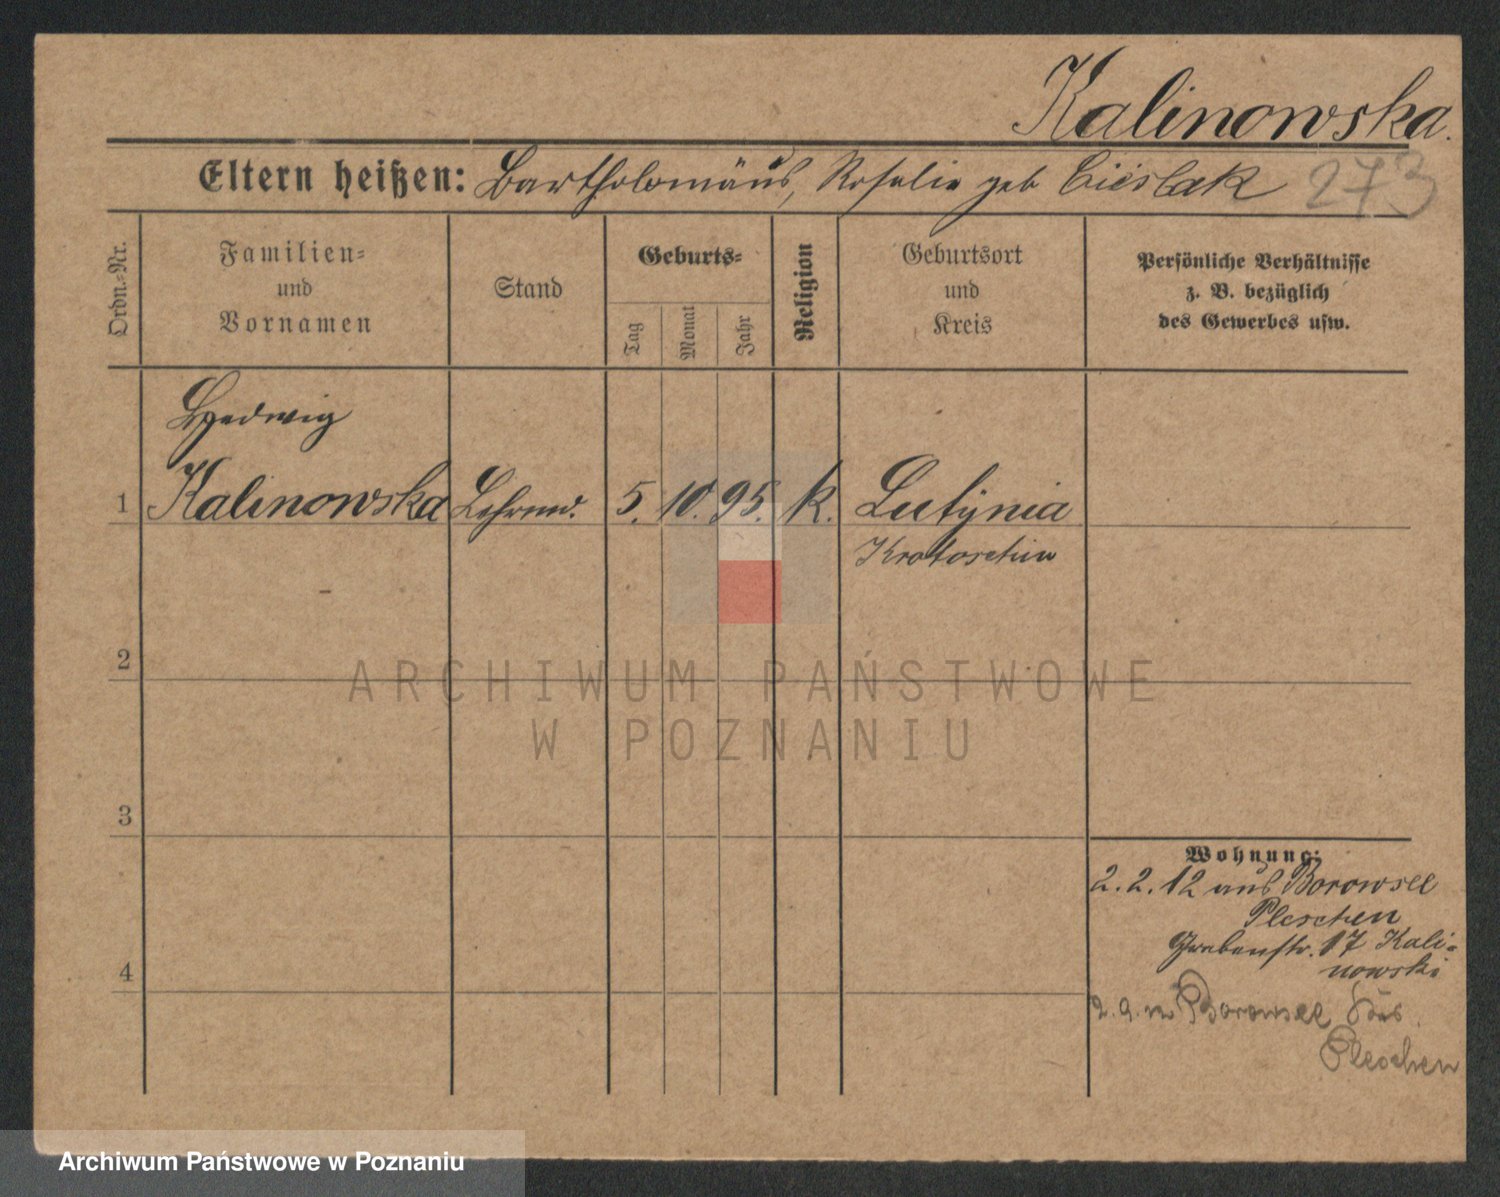 Kalinowska.
Eltern heißen: Bartholomäus, Rosalie geb Cieślak 273
Ordn.-Nr.
Familien-
und
Vornamen
Stand
Geburts-
Tag
Monat
Jahr
Religion
Geburtsort
und
Kreis
Persönliche Verhältnisse
z. B. bezüglich
des Gewerbes usw.
Hedwig
1 Kalinowska 5. 10. 95. k. Lutynia
Krotoschin
2
ARCHIWUM PAŃSTWOWE
W POZNANIU
3
Wohnung:
2. 2. 12 aus Borowsee
Pleschen
Grabenstr. 17 Kali-
nowski
4
Borowsee
Pleschen
Archiwum Państwowe w Poznaniu